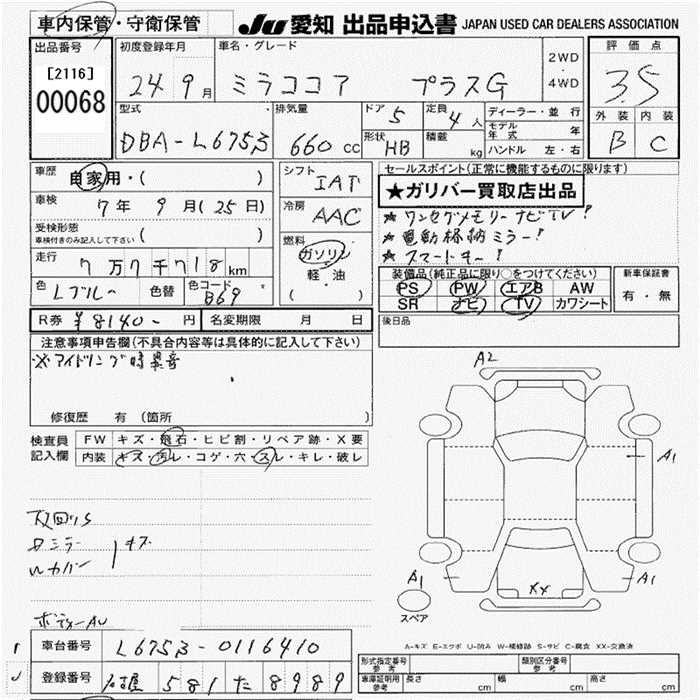 車内保管・守衛保管
JU 愛知 出品申込書 JAPAN USED CAR DEALERS ASSOCIATION
出品番号
[2116]
00068
初度登録年月
24年9月
車名・グレード
ミラココア プラスG
2WD
4WD
評価点
3.5
外装 内装
B C
型式
DBA-L675S
排気量
660 cc
ドア 5
形状 HB
定員 4人
積載 kg
ディーラー・並行
モデル年式 年
ハンドル 左・右
車歴
自家用・( )
車検
7年 9月(25日)
受検形態
車検付きのみ記入して下さい ( )
走行
7万7千718km
色 Lブルー 色替
色コード B69
シフト
IAT
冷房
AAC
燃料
ガソリン
軽・油
( )
セールスポイント(正常に機能するものに限ります)
★ガリバー買取店出品
★ワンセグメモリーナビTV!
★電動格納ミラー!
★スマートキー!
装備品(純正品に限り○をつけてください)
PS PW エアB AW
SR ナビ TV カワシート
新車保証書
有・無
R券 ¥8140- 円
名変期限 月 日
後日品
注意事項申告欄(不具合内容等は具体的に記入して下さい)
※アイドリング時異音
修復歴 有(箇所
検査員
記入欄
FW キズ・飛石・ヒビ割・リペア跡・X要
内装 キズ・汚レ・コゲ・穴・スレ・キレ・破レ
キズ
ボディーAU
A2
A1
A1
A1
XX
スペア
A-キズ E-エクボ U-凹み W-補修跡 S-サビ C-腐食 XX-交換済
車台番号 L675S-0116410
登録番号 名古屋 581 た 8989
形式指定番号
参考
類別区分番号
参考
車庫証明用
参考
長さ cm
幅 cm
高さ cm